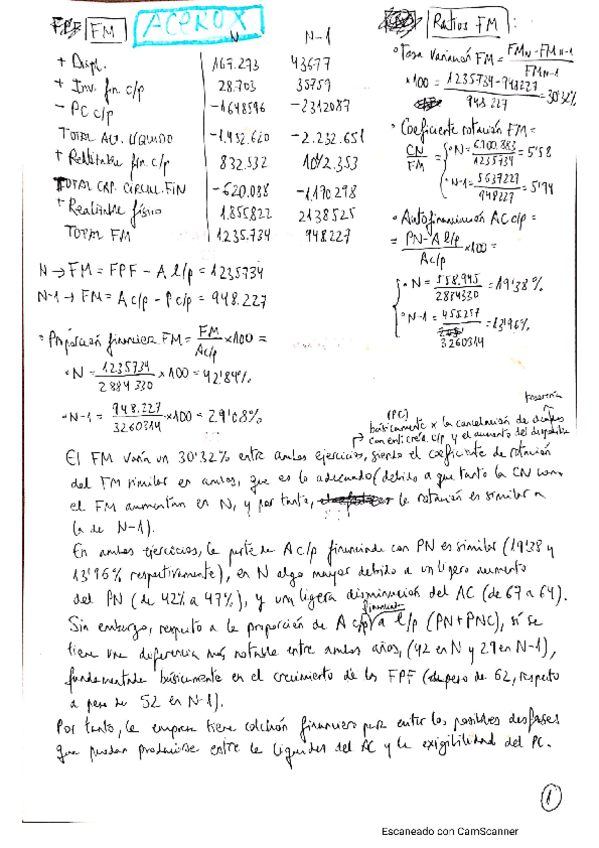 FM ACEROX
N N-1
+ Disp. 167.273 43677
+ Inv. fin. c/p 28.703 35759
- PC c/p -1648596 -2312087
TOTAL ACT. LÍQUIDO -1.452.620 -2.232.651
+ Realizable fin. c/p 832.532 1042.353
TOTAL CAP. CIRCUL. FIN -620.088 -1.190.298
+ Realizable físico 1.855.822 2138525
TOTAL FM 1235.734 948227
N → FM = FPF - A l/p = 1235734
N-1 → FM = A c/p - P c/p = 948.227
• Proporción financiera FM = FM / Ac/p x100 =
• N = 1235734 / 2884330 x 100 = 42'84%
• N-1 = 948.227 / 3260314 x100 = 29'08%
Ratios FM:
• Tasa variación FM = FMN - FMN-1 / FMN-1
x100 = 1235734 - 948227 / 948.227 = 30'32%
• Coeficiente rotación FM =
CN / FM = • N = 6.900.883 / 1235734 = 5'58
• N-1 = 5637227 / 948227 = 5'94
• Autofinanciación AC c/p =
= PN - A l/p / Ac/p x100 =
• N = 558.945 / 2884330 = 19'38%
• N-1 = 455257 / 3260314 = 13'96%
tesorería
(PC)
básicamente x la cancelación de deudas
con ent. créd. c/p y el aumento del disponible
El FM varía un 30'32% entre ambos ejercicios, siendo el coeficiente de rotación
del FM similar en ambos, que es lo adecuado (debido a que tanto la CN como
el FM aumentan en N, y por tanto, la rotación es similar a
la de N-1).
En ambos ejercicios, la parte de A c/p financiada con PN es similar (19'38 y
13'96% respectivamente), en N algo mayor debido a un ligero aumento
del PN (de 42% a 47%), y una ligera disminución del AC (de 67 a 64).
Sin embargo, respecto a la proporción de A c/p financiada a l/p (PN+PNC), sí se
tiene una diferencia más notable entre ambos años, (42 en N y 29 en N-1),
fundamentada básicamente en el crecimiento de los FPF (de peso de 62, respecto
a peso de 52 en N-1).
Por tanto, la empresa tiene colchón financiero para evitar los posibles desfases
que puedan producirse entre la liquidez del AC y la exigibilidad del PC.
1
Escaneado con CamScanner